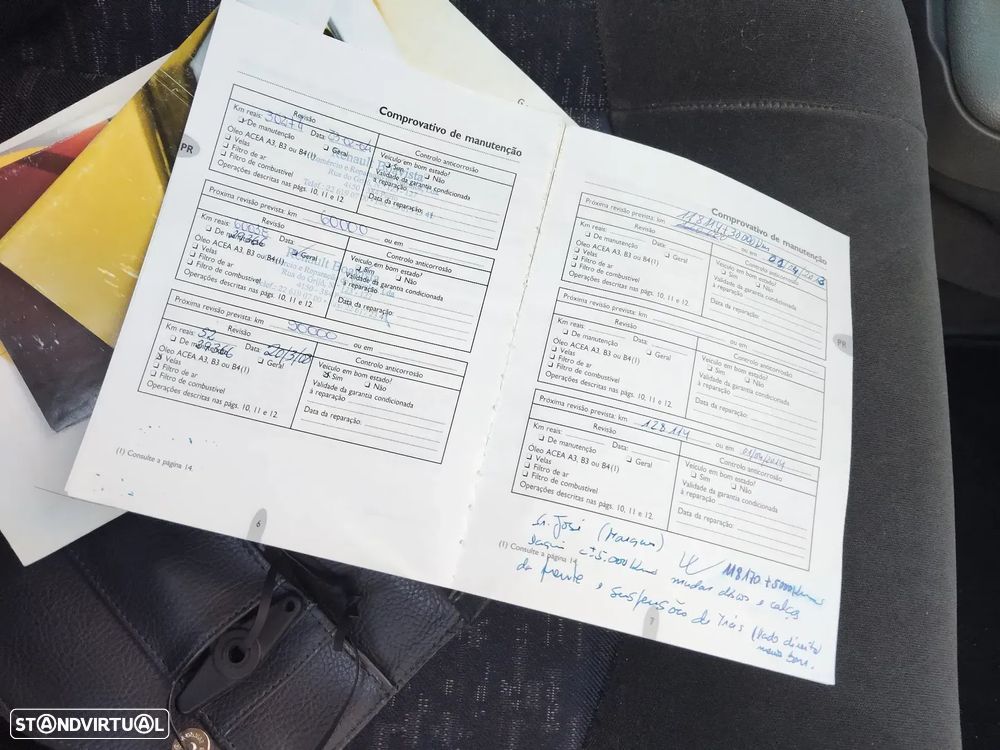 Comprovativo de manutenção
Revisão
Km reais: 30274 Data:
Controlo anticorrosão
❑ De manutenção ❑ Geral
Óleo ACEA A3, B3 ou B4(1)
❑ Velas
❑ Filtro de ar
❑ Filtro de combustível
Operações descritas nas págs. 10, 11 e 12.
Veículo em bom estado?
❑ Sim ❑ Não
Validade da garantia condicionada
à reparação:
Data da reparação:
PR
Próxima revisão prevista: km 60000 ou em
Revisão
Km reais: 60035 Data:
Controlo anticorrosão
❑ De manutenção ❑ Geral
Óleo ACEA A3, B3 ou B4(1)
❑ Velas
❑ Filtro de ar
❑ Filtro de combustível
Operações descritas nas págs. 10, 11 e 12.
Veículo em bom estado?
❑ Sim ❑ Não
Validade da garantia condicionada
à reparação:
Data da reparação:
Próxima revisão prevista: km 90000 ou em
Revisão
Km reais: Data: 20/3/
Controlo anticorrosão
❑ De manutenção ❑ Geral
Óleo ACEA A3, B3 ou B4(1)
❑ Velas
❑ Filtro de ar
❑ Filtro de combustível
Operações descritas nas págs. 10, 11 e 12.
Veículo em bom estado?
❑ Sim ❑ Não
Validade da garantia condicionada
à reparação:
Data da reparação:
(1) Consulte a página 14.
6
Comprovativo de manutenção
Próxima revisão prevista: km 118114+30000Km ou em
Revisão
Km reais: Data:
Controlo anticorrosão
❑ De manutenção ❑ Geral
Óleo ACEA A3, B3 ou B4(1)
❑ Velas
❑ Filtro de ar
❑ Filtro de combustível
Operações descritas nas págs. 10, 11 e 12.
Veículo em bom estado?
❑ Sim ❑ Não
Validade da garantia condicionada
à reparação:
Data da reparação:
PR
Próxima revisão prevista: km ou em
Revisão
Km reais: Data:
Controlo anticorrosão
❑ De manutenção ❑ Geral
Óleo ACEA A3, B3 ou B4(1)
❑ Velas
❑ Filtro de ar
❑ Filtro de combustível
Operações descritas nas págs. 10, 11 e 12.
Veículo em bom estado?
❑ Sim ❑ Não
Validade da garantia condicionada
à reparação:
Data da reparação:
Próxima revisão prevista: km 128114 ou em 01/04/2014
Revisão
Km reais: Data:
Controlo anticorrosão
❑ De manutenção ❑ Geral
Óleo ACEA A3, B3 ou B4(1)
❑ Velas
❑ Filtro de ar
❑ Filtro de combustível
Operações descritas nas págs. 10, 11 e 12.
Veículo em bom estado?
❑ Sim ❑ Não
Validade da garantia condicionada
à reparação:
Data da reparação:
Sr. José
(1) Consulte a página 14
118170 + 5000Kms
5.000 Kms mudar discos e calços
da frente e suspensão de trás (lado direito
7
STANDVIRTUAL